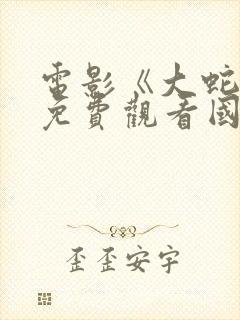 電影《大蛇
免費觀看國
歪歪安宇